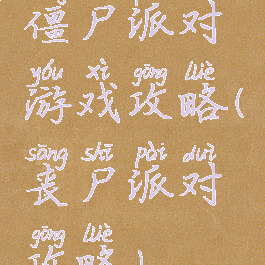 僵尸派对
yóu xì gōng lüè
游戏攻略(
sāng shī pài duì
丧尸派对
gōng lüè
攻略)